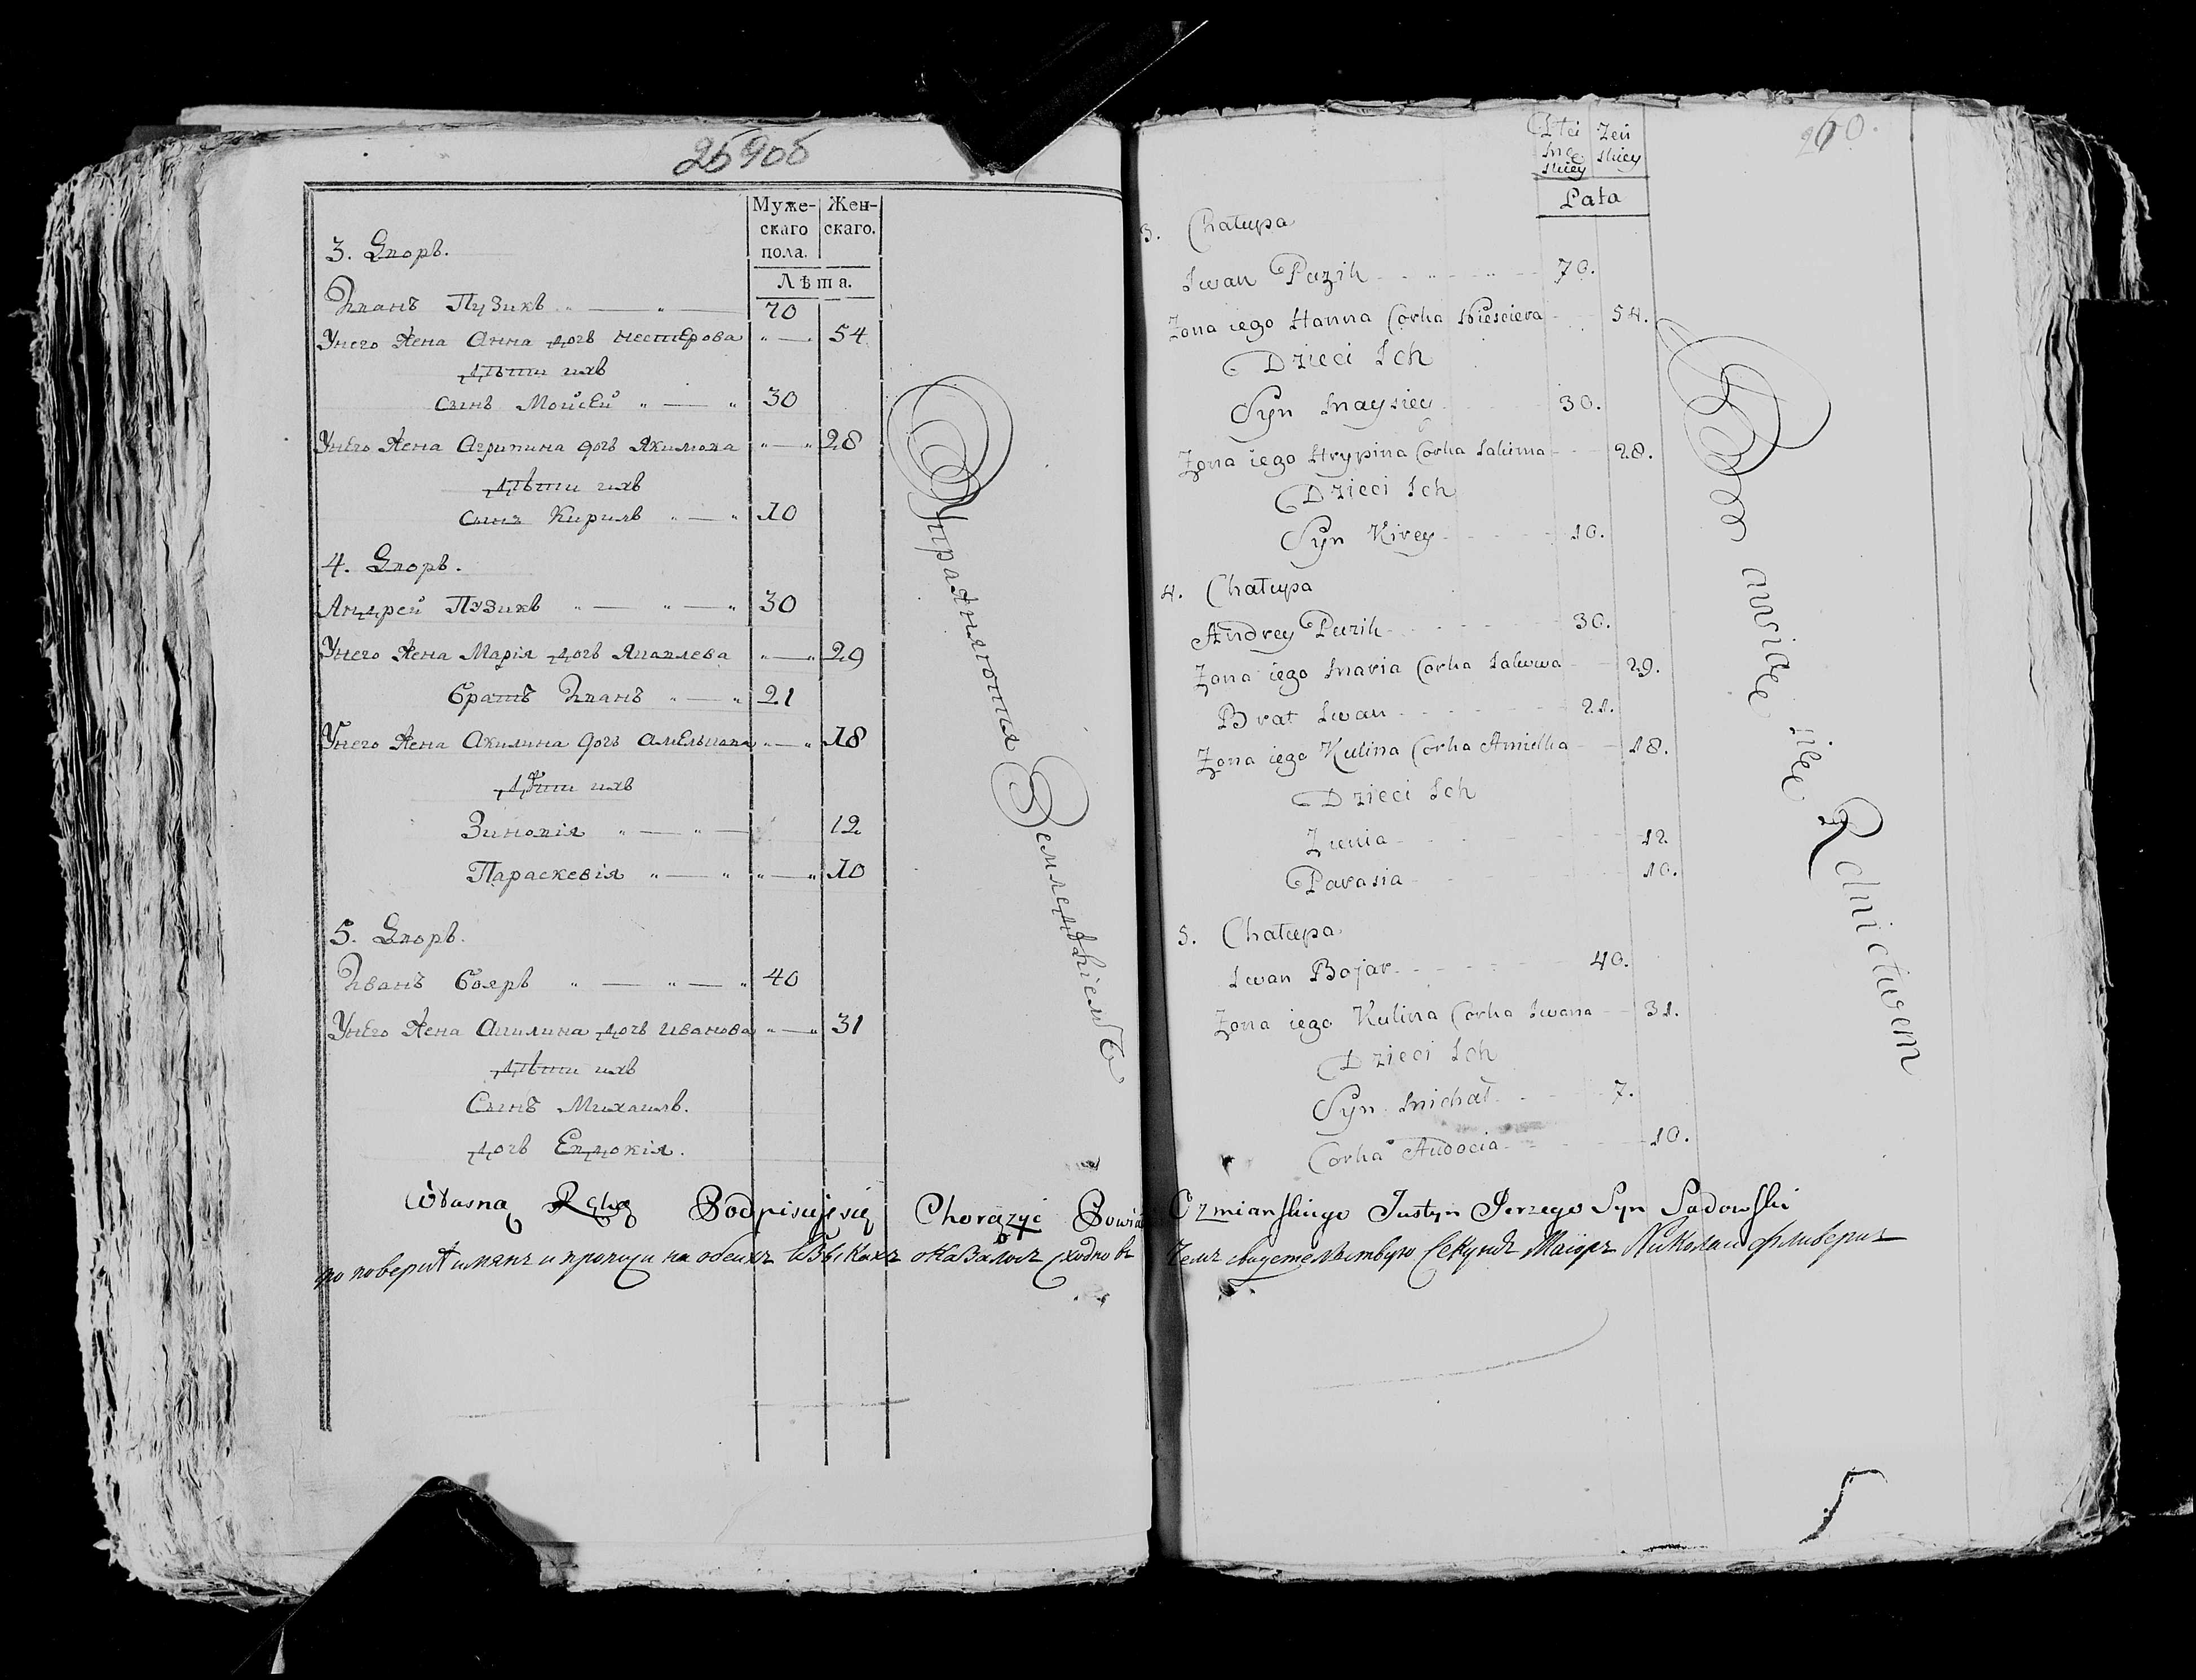 259об
Муже-
скаго
пола.
Жен-
скаго.
Лѣта.
3. Дворъ.
Иванъ Пузикъ 70
Унего жена Анна дочь нестерова 54
Дѣти ихъ
сынъ Мойсей 30
Унего жена Агрипина дочь Якимова 28
Дѣти ихъ
сынъ Кирилъ 10
4. Дворъ.
Андрей Пузикъ 30
Унего жена Марія дочь Яковлева 29
братъ Иванъ 21
Унего жена Акилина дочь Амельнова 18
Дѣти ихъ
Зиновія 12
Параскевія 10
5. Дворъ.
Иванъ бояръ 40
Унего жена Акилина дочь иванова 31
Дѣти ихъ
Сынъ Михаилъ.
дочь Евдокія.
Упражняютія Земледѣліемъ
260.
Płci
męs
skiey
Żeń
skiey
Lata
3. Chałupa
Iwan Puzik 70.
Zona iego Hanna Corka Niesciera 54.
Dzieci Ich
Syn Maysiey 30.
Zona iego Hrypina Corka Iakima 28.
Dzieci Ich
Syn Kirey 10.
4. Chałupa
Andrey Puzik 30.
Zona iego Maria Corka Iakowa 29.
Brat Iwan 21.
Zona iego Kulina Corka Amielka 18.
Dzieci Ich
Zienia 12
Parasia 10.
5. Chałupa
Iwan Bojar 40.
Zona iego Kulina Corka Iwana 31.
Dzieci Ich
Syn Michał 7.
Corka Audocia 10.
Rolnictwem
Własną Ręką Podpisuję się Chorążyc Powia Ozmianskiego Iustyn Ierzego Syn Sadowski
по поверки имянъ и прочаго на обеихъ языкахъ оказалось сходно въ чемъ свидетелствую Секундъ Маіоръ Николаи